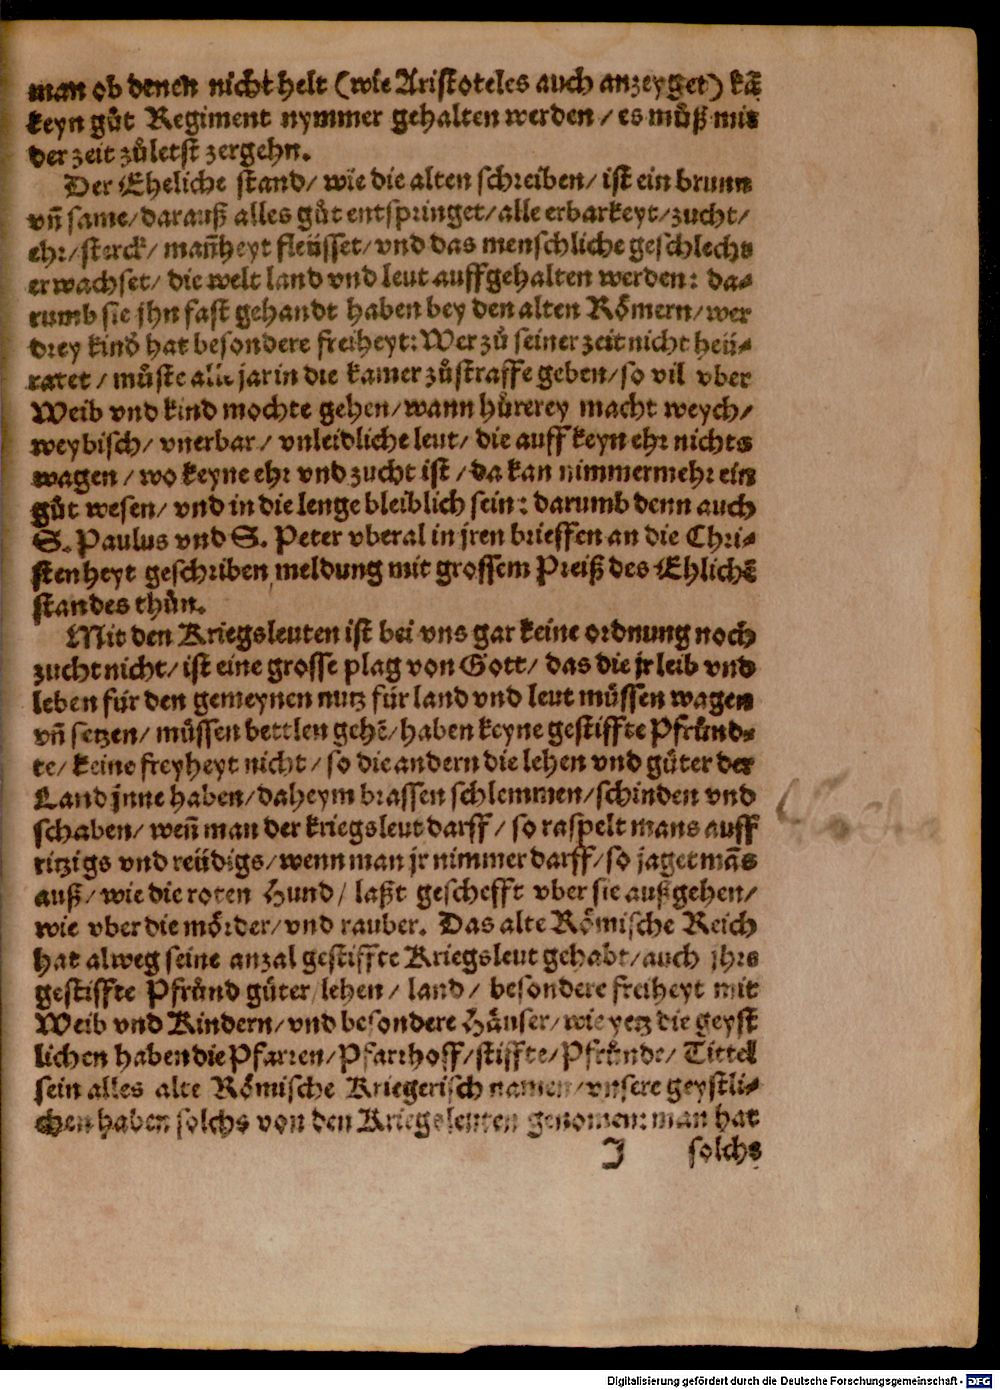 man ob denen nicht helt (wie Aristoteles auch anzeyget) kā
keyn gůt Regiment nymmer gehalten werden / es můß mit
der zeit zůletst zergehn.
Der Eheliche stand / wie die alten schreiben / ist ein brunn
vñ same / darauß alles gůt entspringet / alle erbarkeyt / zucht /
ehr / sterck / mañheyt fleüsset / vnd das menschliche geschlecht
erwachset / die welt land vnd leut auffgehalten werden: da-
rumb sie jhn fast gehandt haben bey den alten Römern / wer
drey kind hat besondere freiheyt: Wer zů seiner zeit nicht heü-
ratet / můste alle jar in die kamer zů straffe geben / so vil vber
Weib vnd kind mochte gehen / wann hůrerey macht weych /
weybisch / vnerbar / vnleidliche leut / die auff keyn ehr nichts
wagen / wo keyne ehr vnd zucht ist / da kan nimmermehr ein
gůt wesen / vnd in die lenge bleiblich sein: darumb denn auch
S. Paulus vnd S. Peter vberal in jren brieffen an die Chri-
stenheyt geschriben meldung mit grossem Preiß des Ehlichē
standes thůn.
Mit den Kriegsleuten ist bei vns gar keine ordnung noch
zucht nicht / ist eine grosse plag von Gott / das die jr leib vnd
leben für den gemeynen nutz für land vnd leut müssen wagen
vñ setzen / müssen bettlen gehē / haben keyne gestiffte Pfrůnd-
te / keine freyheyt nicht / so die andern die lehen vnd güter der
Land jnne haben / daheym brassen schlemmen / schinden vnd
schaben / weñ man der kriegsleut darff / so raspelt mans auff
ritzigs vnd reüdigs / wenn man jr nimmer darff / so jaget mās
auß / wie die roten Hund / laßt geschefft vber sie außgehen /
wie vber die mörder / vnd rauber. Das alte Römische Reich
hat alweg seine anzal gestiffte Kriegsleut gehabt / auch jhre
gestiffte Pfrůnd güter / lehen / land / besondere freiheyt mit
Weib vnd Kindern / vnd besondere Häuser / wie yetz die geyst
lichen haben die Pfarren / Pfarrhoff / stiffte / Pfrůnde / Tittel
sein alles alte Römische Kriegerisch namen / vnsere geystli-
chen haben solchs von den Kriegsleuten genomen: man hat
J solchs
Digitalisierung gefördert durch die Deutsche Forschungsgemeinschaft - DFG